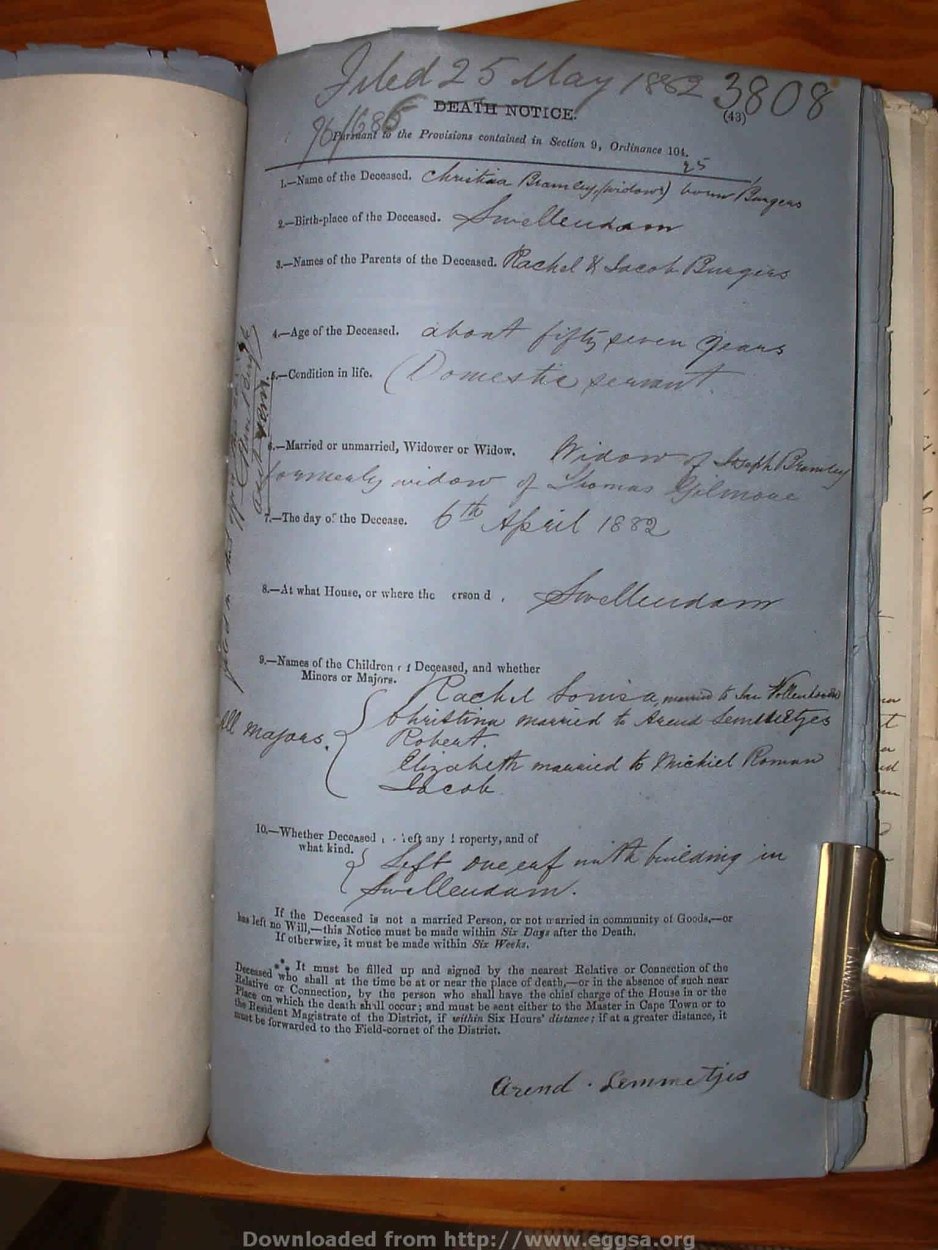 Filed 25 May 1882 3808
DEATH NOTICE.
(43)
Pursuant to the Provisions contained in Section 9, Ordinance 104.
25
1.—Name of the Deceased. Christina Bramley (widow) born Burgers
2.—Birth-place of the Deceased. Swellendam
3.—Names of the Parents of the Deceased. Rachel & Jacob Burgers
4.—Age of the Deceased. about fifty seven years
5.—Condition in life. (Domestic servant
6.—Married or unmarried, Widower or Widow. Widow of Joseph Bramley
formerly widow of Thomas Gilmore
7.—The day of the Decease. 6th April 1882
8.—At what House, or where the erson d . Swellendam
9.—Names of the Children of Deceased, and whether
Minors or Majors.
Rachel Louisa married to Jan
Christina married to Arend Lemmetjes
All majors. Robert.
Elizabeth married to Michiel Roman
Jacob
10.—Whether Deceased left any roperty, and of
what kind.
Left one erf with building in
Swellendam.
If the Deceased is not a married Person, or not married in community of Goods,—or
has left no Will,—this Notice must be made within Six Days after the Death.
If otherwise, it must be made within Six Weeks.
It must be filled up and signed by the nearest Relative or Connection of the
Deceased who shall at the time be at or near the place of death,—or in the absence of such near
Relative or Connection, by the person who shall have the chief charge of the House in or the
Place on which the death shall occur; and must be sent either to the Master in Cape Town or to
the Resident Magistrate of the District, if within Six Hours' distance; if at a greater distance, it
must be forwarded to the Field-cornet of the District.
Arend . Lemmetjes
Downloaded from http://www.eggsa.org